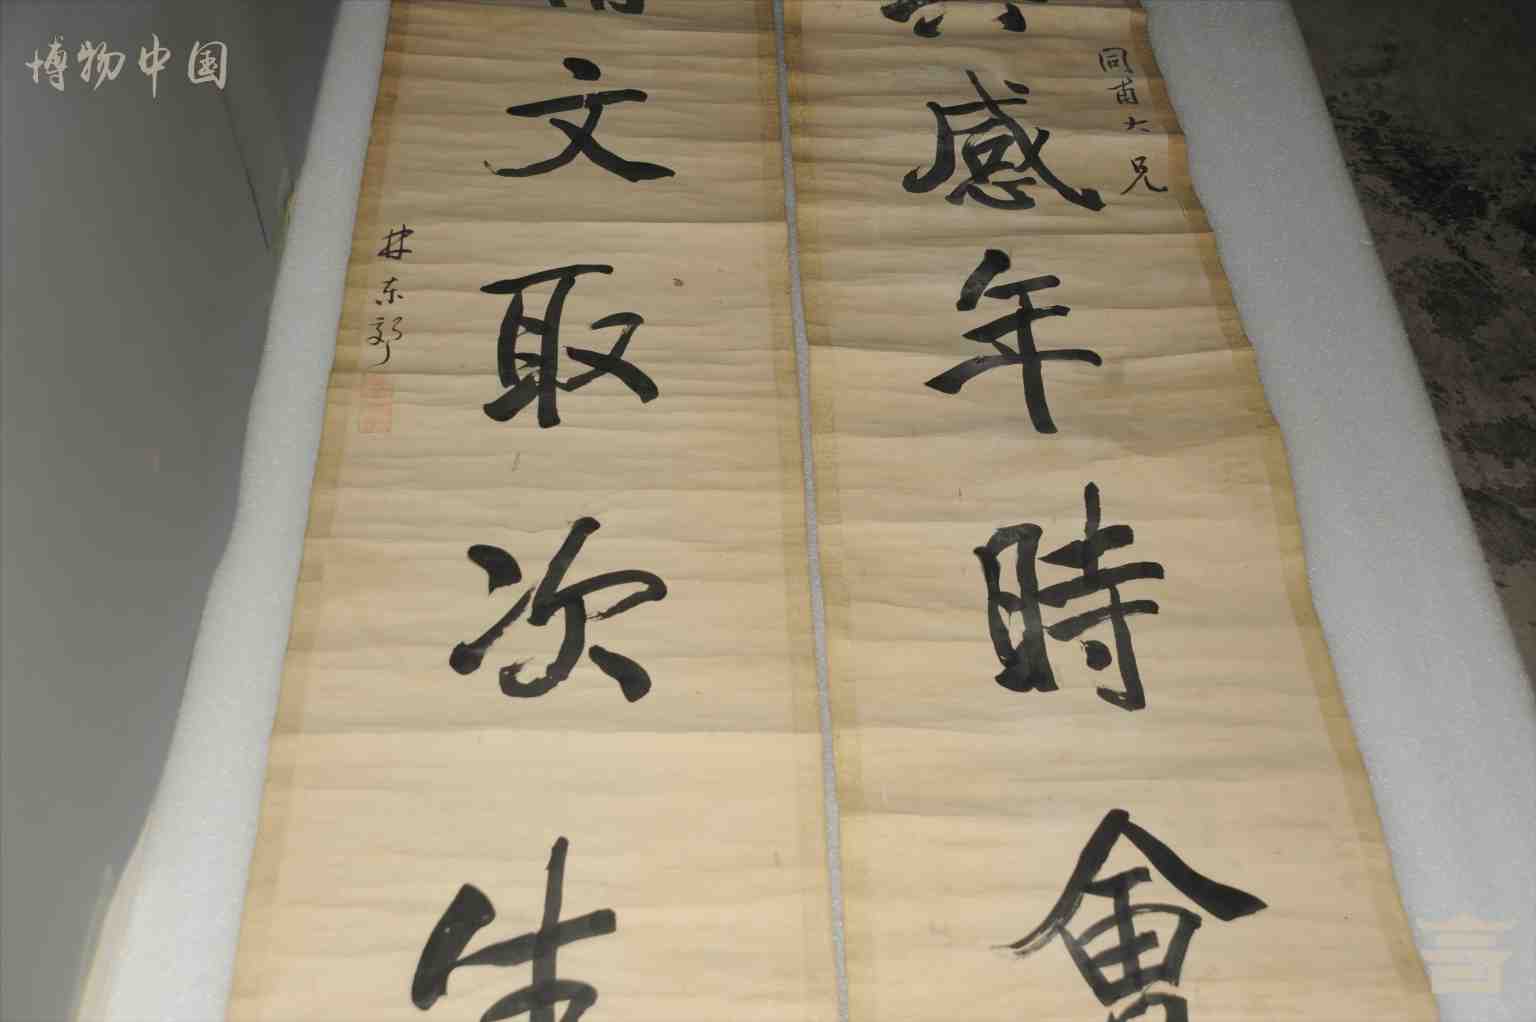 博物中国
同甫大兄
感年時會
文取次生
林东郊